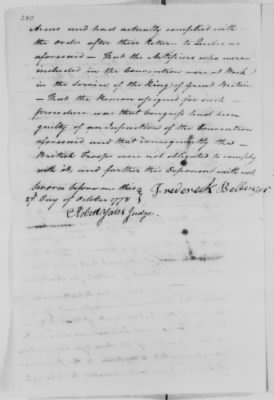 240
Arms and had actually complied with
the order after their Return to
aforesaid — That the Artificers who were
included in the Convention were at Work
in the Service of the King of Great Britain
— That the Reason assigned for such
Procedure was that Congress had been
guilty of an Infraction of the Convention
aforesaid and that consequently the
British Troops were not obliged to comply
with it, and further this Deponent saith not
Sworn before me this
27 Day of October 1778
Frederick
Robt Yates Judge.